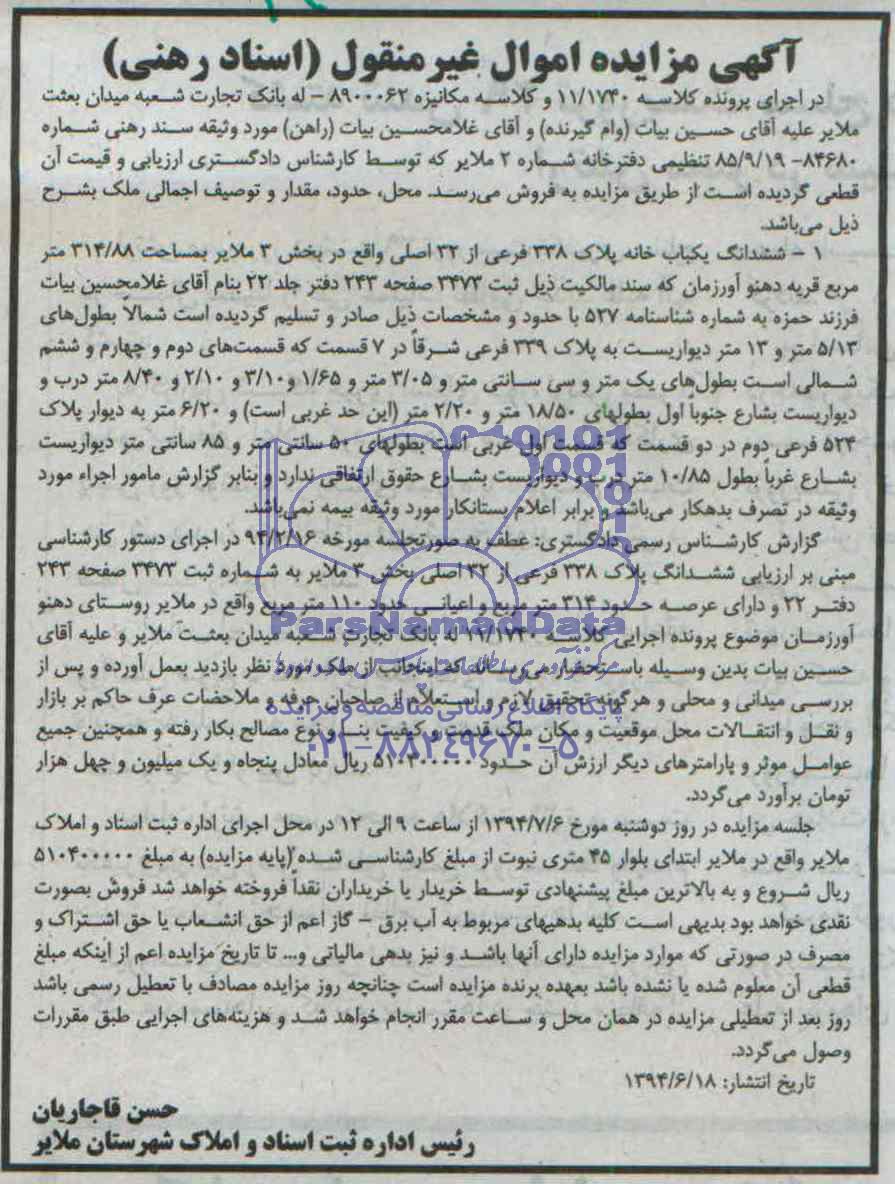 آگهی مزایده اموال غیرمنقول (اسناد رهنی)
در اجرای پرونده کلاسه ۱۱/۱۷۴۰ و کلاسه مکانیزه ۸۹۰۰۰۶۲ - له بانک تجارت شعبه میدان بعثت
ملایر علیه آقای حسین بیات (وام گیرنده) و آقای غلامحسین بیات (راهن) مورد وثیقه سند رهنی شماره
۸۴۶۸۰- ۸۵/۹/۱۹ تنظیمی دفترخانه شماره ۲ ملایر که توسط کارشناس دادگستری ارزیابی و قیمت آن
قطعی گردیده است از طریق مزایده به فروش می‌رسد. محل، حدود، مقدار و توصیف اجمالی ملک بشرح
ذیل می‌باشد.
۱ - ششدانگ یکباب خانه پلاک ۳۳۸ فرعی از ۳۲ اصلی واقع در بخش ۳ ملایر بمساحت ۳۱۴/۸۸ متر
مربع قریه دهنو آورزمان که سند مالکیت ذیل ثبت ۳۴۷۳ صفحه ۲۴۳ دفتر جلد ۲۲ بنام آقای غلامحسین بیات
فرزند حمزه به شماره شناسنامه ۵۲۷ با حدود و مشخصات ذیل صادر و تسلیم گردیده است شمالاً بطول‌های
۵/۱۳ متر و ۱۳ متر دیواریست به پلاک ۳۳۹ فرعی شرقاً در ۷ قسمت که قسمت‌های دوم و چهارم و ششم
شمالی است بطول‌های یک متر و سی سانتی متر و ۳/۰۵ متر و ۱/۶۵ و ۳/۱۰ و ۲/۱۰ و ۸/۴۰ متر درب و
دیواریست بشارع جنوباً اول بطولهای ۱۸/۵۰ متر و ۲/۲۰ متر (این حد غربی است) و ۶/۲۰ متر به دیوار پلاک
۵۲۴ فرعی دوم در دو قسمت که قسمت اول غربی است بطولهای ۵۰ سانتی متر و ۸۵ سانتی متر دیواریست
بشارع غرباً بطول ۱۰/۸۵ متر درب و دیواریست بشارع حقوق ارتفاقی ندارد و بنابر گزارش مامور اجراء مورد
وثیقه در تصرف بدهکار می‌باشد و برابر اعلام بستانکار مورد وثیقه بیمه نمی‌باشد.
گزارش کارشناس رسمی دادگستری: عطف به صورتجلسه مورخه ۹۴/۲/۱۶ در اجرای دستور کارشناسی
مبنی بر ارزیابی ششدانگ پلاک ۳۳۸ فرعی از ۳۲ اصلی بخش ۳ ملایر به شماره ثبت ۳۴۷۳ صفحه ۲۴۳
دفتر ۲۲ و دارای عرصه حدود ۳۱۴ متر مربع و اعیانی حدود ۱۱۰ متر مربع واقع در ملایر روستای دهنو
آورزمان موضوع پرونده اجرایی کلاسه ۱۱/۱۷۴۰ له بانک تجارت شعبه میدان بعثت ملایر و علیه آقای
حسین بیات بدین وسیله باستحضار می‌رساند که اینجانب از ملک مورد نظر بازدید بعمل آورده و پس از
بررسی میدانی و محلی و هرگونه تحقیق لازم و استعلام از صاحبان حرفه و ملاحضات عرف حاکم بر بازار
و نقل و انتقالات محل موقعیت و مکان ملک قدمت و کیفیت بنا و نوع مصالح بکار رفته و همچنین جمیع
عوامل موثر و پارامترهای دیگر ارزش آن حدود ریال معادل پنجاه و یک میلیون و چهل هزار
تومان برآورد می‌گردد.
جلسه مزایده در روز دوشنبه مورخ ۱۳۹۴/۷/۶ از ساعت ۹ الی ۱۲ در محل اجرای اداره ثبت اسناد و املاک
ملایر واقع در ملایر ابتدای بلوار ۴۵ متری نبوت از مبلغ کارشناسی شده (پایه مزایده) به مبلغ ۵۱۰۴۰۰۰۰۰
ریال شروع و به بالاترین مبلغ پیشنهادی توسط خریدار یا خریداران نقداً فروخته خواهد شد فروش بصورت
نقدی خواهد بود بدیهی است کلیه بدهیهای مربوط به آب برق - گاز اعم از حق انشعاب یا حق اشتراک و
مصرف در صورتی که موارد مزایده دارای آنها باشد و نیز بدهی مالیاتی و... تا تاریخ مزایده اعم از اینکه مبلغ
قطعی آن معلوم شده یا نشده باشد بعهده برنده مزایده است چنانچه روز مزایده مصادف با تعطیل رسمی باشد
روز بعد از تعطیلی مزایده در همان محل و ساعت مقرر انجام خواهد شد و هزینه‌های اجرایی طبق مقررات
وصول می‌گردد.
تاریخ انتشار: ۱۳۹۴/۶/۱۸
حسن قاجاریان
رئیس اداره ثبت اسناد و املاک شهرستان ملایر
ParsNamadData
پایگاه اطلاع رسانی مناقصه و مزایده
۰۲۱-۸۸۳۴۹۶۷۰-۵